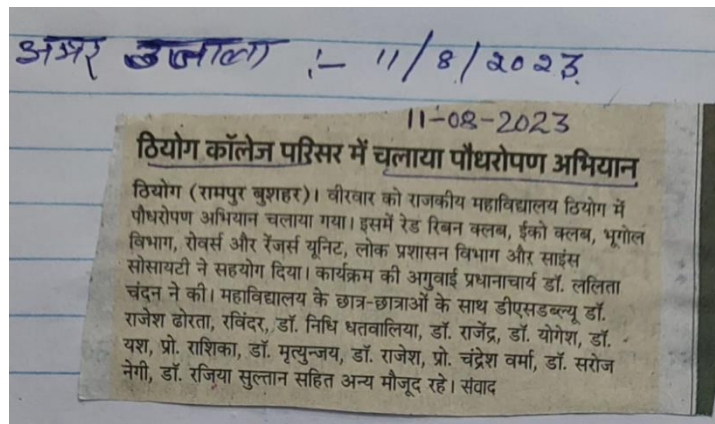 अमर उजाला :- 11/8/2023
11-08-2023
ठियोग कॉलेज परिसर में चलाया पौधरोपण अभियान
ठियोग (रामपुर बुशहर)। वीरवार को राजकीय महाविद्यालय ठियोग में
पौधरोपण अभियान चलाया गया। इसमें रेड रिबन क्लब, ईको क्लब, भूगोल
विभाग, रोवर्स और रेंजर्स यूनिट, लोक प्रशासन विभाग और साइंस
सोसायटी ने सहयोग दिया। कार्यक्रम की अगुवाई प्रधानाचार्य डॉ. ललिता
चंदन ने की। महाविद्यालय के छात्र-छात्राओं के साथ डीएसडब्ल्यू डॉ.
राजेश ढोरता, रविंदर, डॉ. निधि धतवालिया, डॉ. राजेंद्र, डॉ. योगेश, डॉ.
यश, प्रो. राशिका, डॉ. मृत्युन्जय, डॉ. राजेश, प्रो. चंद्रेश वर्मा, डॉ. सरोज
नेगी, डॉ. रजिया सुल्तान सहित अन्य मौजूद रहे। संवाद